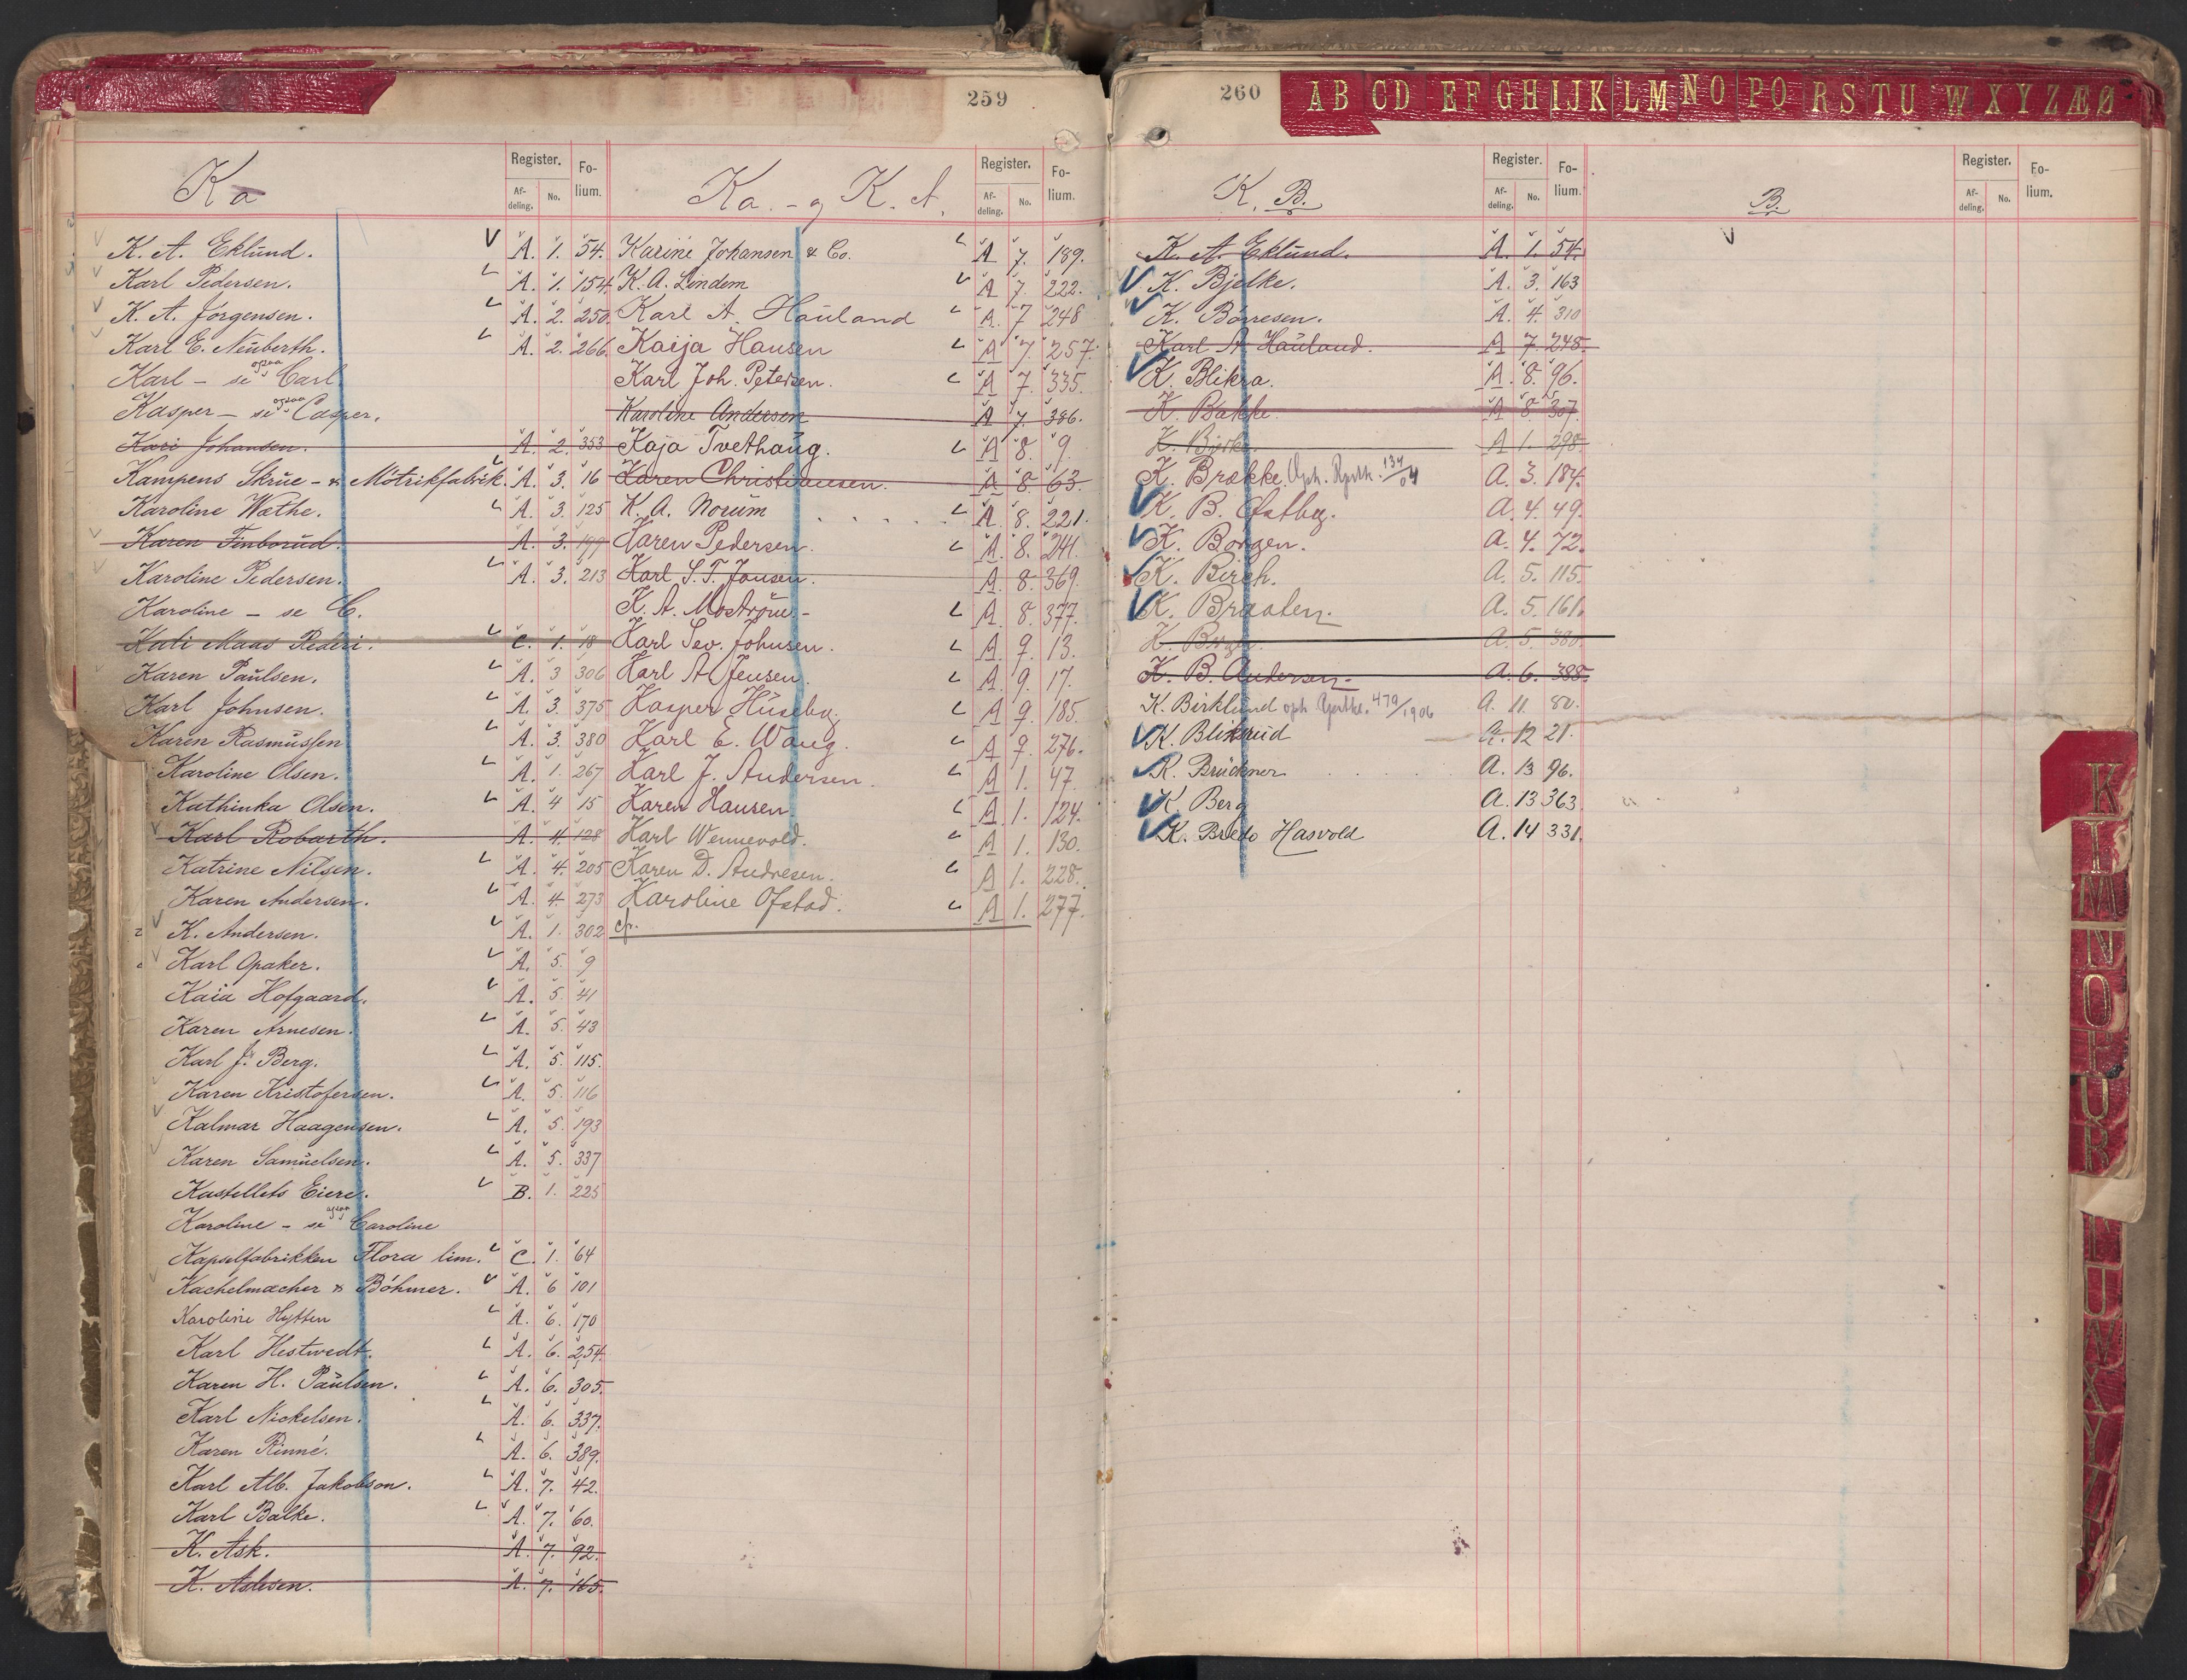 259
Ka
Register. Folium.
Afdeling. No.
K. A. Eklund. A. 1. 54.
Karl Pedersen. A. 1. 154.
K. A. Jörgensen. A. 2. 250.
Karl E. Neuberth. A. 2. 266.
Karl - se ogsaa Carl
Kasper - se ogsaa Casper.
Kari Johansen. A. 2. 353
Kampens Skrue- & Mötrikfabrik. A. 3. 16
Karoline Wæthe. A. 3. 125
Karen Finborud. A. 3. 199
Karoline Pedersen. A. 3. 213
Karoline - se C.
Kati Maas Rederi. C. 1. 18
Karen Paulsen. A. 3 306
Karl Johnsen. A. 3. 375
Karen Rasmussen A. 3. 380
Karoline Olsen. A. 1. 267
Kathinka Olsen. A. 4 15
Karl Robarth. A. 4. 128
Katrine Nilsen. A. 4. 205
Karen Andersen. A. 4. 273
K. Andersen. A. 1. 302
Karl Opaker. A. 5. 9
Kaia Hofgaard. A. 5. 41
Karen Arnesen. A. 5. 43
Karl Jr. Berg. A. 5. 115.
Karen Kristofersen. A. 5. 116
Kalmar Haagensen. A. 5. 193
Karen Samuelsen. A. 5. 337
Kastellets Eiere. B. 1. 225
Karoline - se ogsaa Caroline
Kapselfabrikken Flora lim. C. 1. 64
Kachelmacher & Böhmer. A. 6 101
Karoline Hytten A. 6. 170
Karl Hestvedt. A. 6. 254.
Karen H. Paulsen. A. 6. 305.
Karl Nickelsen. A. 6. 337.
Karen Rinné. A. 6. 389.
Karl Alb. Jakobson. A. 7. 42.
Karl Balke. A. 7. 60.
K. Ask. A. 7. 92.
K. Aslesen. A. 7. 165.
Ka. - og K. A.
Register. Folium.
Afdeling. No.
Karine Johansen & Co. A 7. 189.
K. A. Lindem A 7. 222.
Karl A. Hauland A. 7 248
Kaija Hansen A 7. 257.
Karl Joh. Petersen. A 7. 335.
Karoline Andersen A 7. 386.
Kaja Tvethaug. A 8. 9.
Karen Christiansen. A 8. 63.
K. A. Norum A. 8. 221.
Karen Pedersen. A. 8. 241.
Karl S. T. Jansen. A. 8. 369.
K. A. A. 8. 377.
Karl Sev. Johnsen. A. 9. 13.
Karl A Jensen. A. 9. 17.
Kasper Huseby. A 9. 185.
Karl E. Wang. A 9. 276.
Karl J. Andersen. A 1. 47.
Karen Hansen. A 1. 124.
Karl Wennevold. A 1. 130.
Karen D. Andresen. A 1. 228.
Karoline Ofstad. A 1. 277.
cfr.
260
AB CD EF GH IJK LM NO PQ RS TU W XYZÆØ
K. B.
Register. Folium.
Afdeling. No.
K. A. Eklund. A. 1. 54.
K. Bjelke. A. 3. 163
K. Börresen. A. 4. 310
Karl A Hauland. A 7. 248.
K. Blikra. A. 8. 96.
K. Bakke. A 8 307.
K. A 1. 298.
K. Brække. Oph. 134/04 A. 3. 187.
K. B. Østby. A. 4. 49.
K. Borgen. A. 4. 72.
K. Birch. A. 5. 115.
K. Braaten. A. 5. 161.
K. A. 5. 380.
K. B. Andersen. A. 6. 388.
K. Birklund oph 479/1906 A. 11 80.
K. Bliksrud A. 12 21.
K. Brückner A. 13 96.
K. Berg A. 13 363
K. Bredo Hasvold A. 14 331.
B.
Register. Folium.
Afdeling. No.
K
L
M
N
O
P
U
R
U
W
X
Y